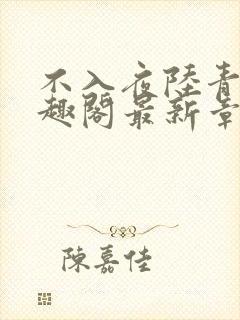 不入夜陸青
趣閣最新章
陳嘉佳